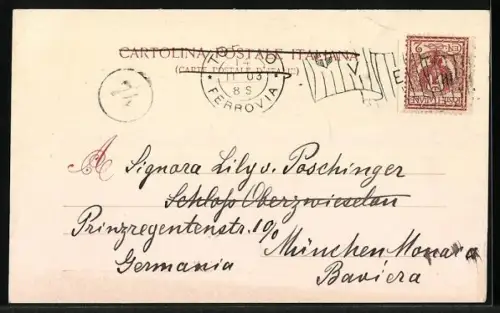 CARTOLINA POSTALE ITALIANA
(CARTE POSTALE D'ITALIE)
TORINO
11 03
8 S
FERROVIA
A Signora Lily v. Poschinger
Schloss Oberzwieselau
Prinzregentenstr. 10/0
München Monaco
Germania
Baviera